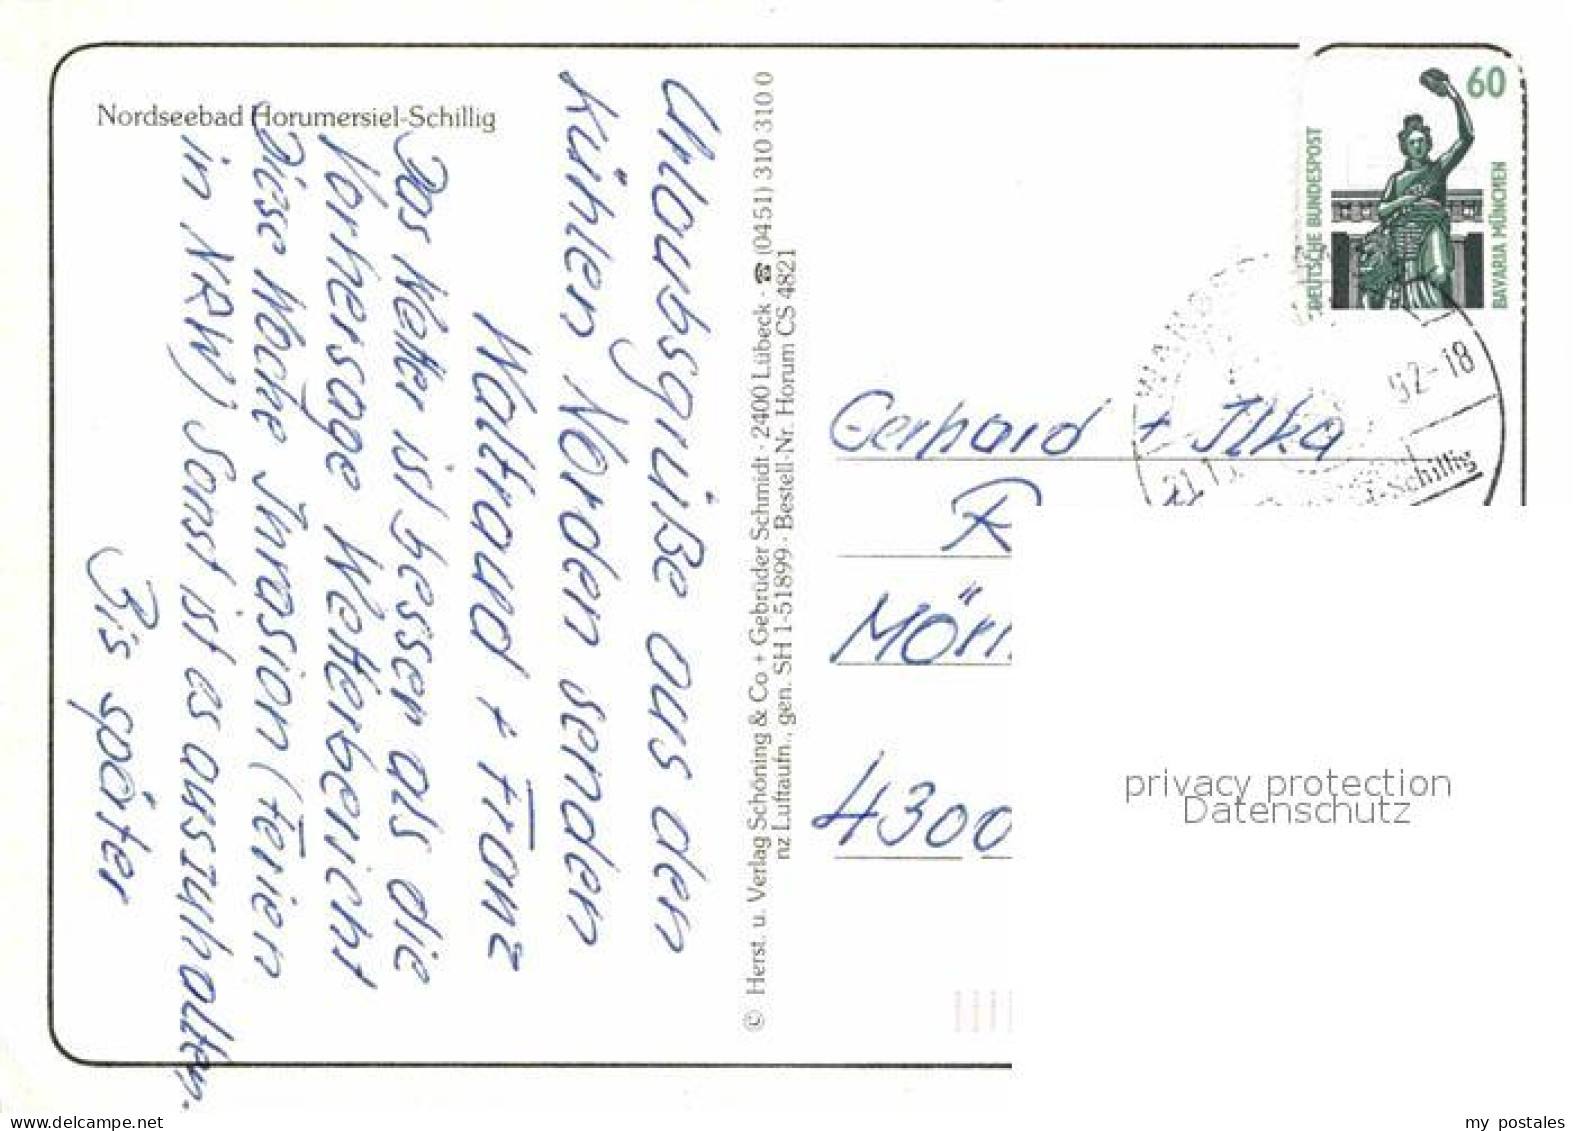 Nordseebad Horumersiel-Schillig
Urlaubsgrüße aus den
kühlen Norden senden
Waltraud + Franz
Das Wetter ist besser als die
Vorhersage Wetterbericht
Diese Woche Invasion (Ferien
in NRW) Sonst ist es auszuhalten.
Bis später
© Herst. u. Verlag Schöning & Co + Gebrüder Schmidt · 2400 Lübeck · ☎ (0451) 310 310 0
nz Luftaufn., gen. SH 1-51899 · Bestell-Nr. Horum CS 4821
60
DEUTSCHE BUNDESPOST
BAVARIA MÜNCHEN
92-18
21.
-Schillig
Gerhard + Ilka
R
Mör
4300
privacy protection
Datenschutz
delcampe.net
my_postales